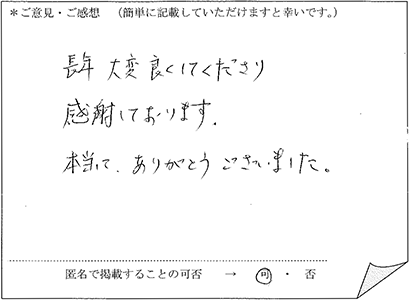 ＊ご意見・ご感想　（簡単に記載していただけますと幸いです。）
長年 大変良くしてくださり
感謝しております.
本当に、ありがとうございました。
匿名で掲載することの可否　→　可・否